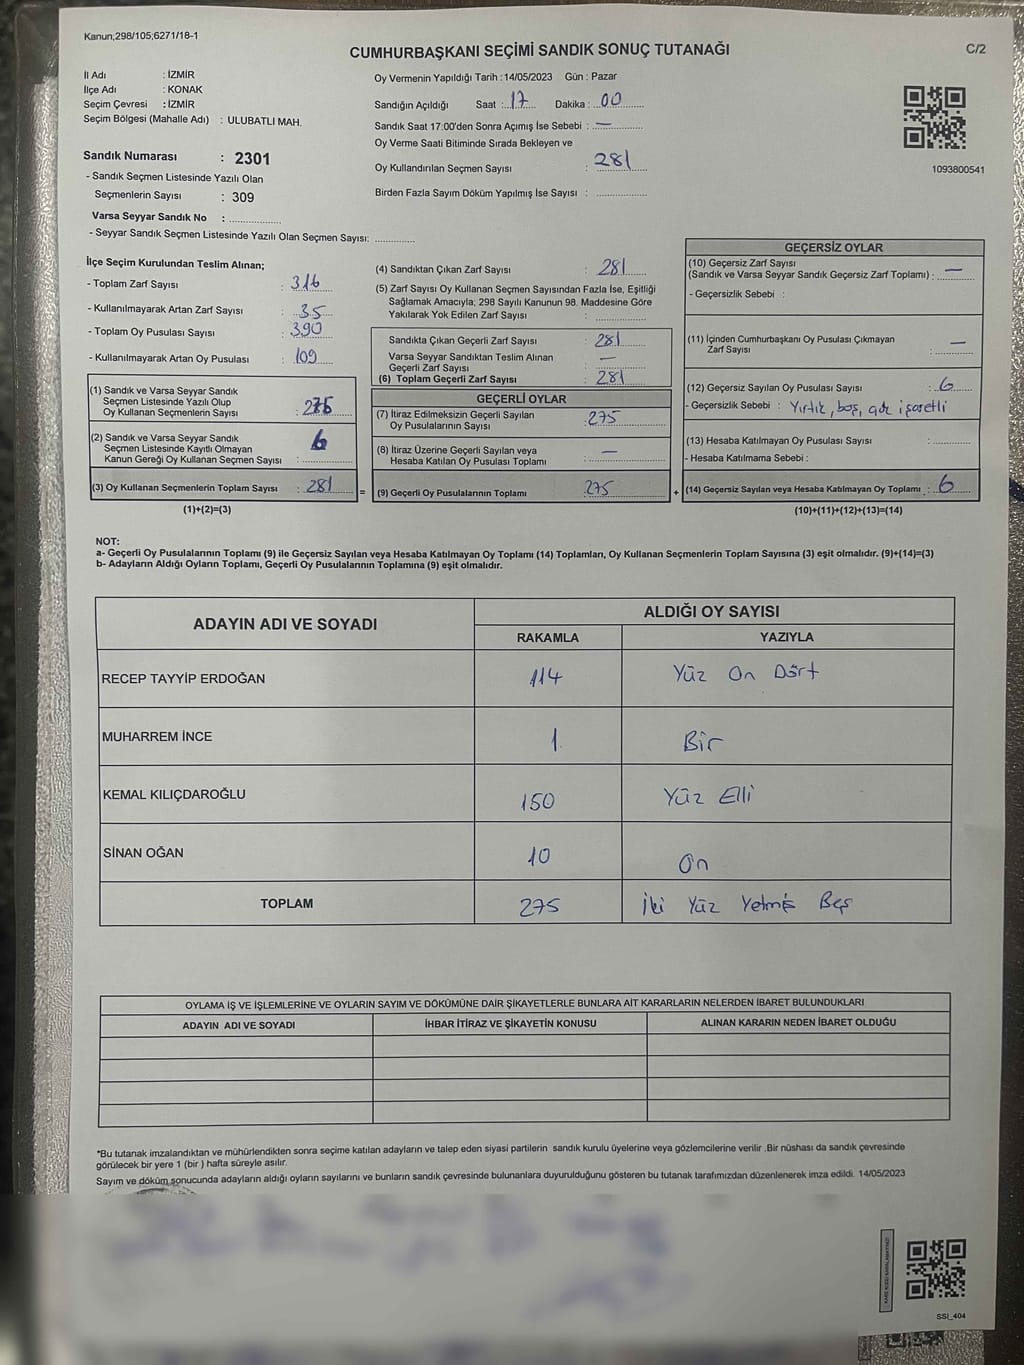 Kanun;298/105;6271/18-1
CUMHURBAŞKANI SEÇİMİ SANDIK SONUÇ TUTANAĞI
C/2
İl Adı : İZMİR
İlçe Adı : KONAK
Seçim Çevresi : İZMİR
Seçim Bölgesi (Mahalle Adı) : ULUBATLI MAH.
Oy Vermenin Yapıldığı Tarih : 14/05/2023 Gün : Pazar
Sandığın Açıldığı Saat : 17 Dakika : 00
Sandık Saat 17:00'den Sonra Açımış İse Sebebi : —
Oy Verme Saati Bitiminde Sırada Bekleyen ve
Oy Kullandırılan Seçmen Sayısı : 281
Birden Fazla Sayım Döküm Yapılmış İse Sayısı :
1093800541
Sandık Numarası : 2301
- Sandık Seçmen Listesinde Yazılı Olan
Seçmenlerin Sayısı : 309
Varsa Seyyar Sandık No :
- Seyyar Sandık Seçmen Listesinde Yazılı Olan Seçmen Sayısı:
İlçe Seçim Kurulundan Teslim Alınan;
- Toplam Zarf Sayısı : 316
- Kullanılmayarak Artan Zarf Sayısı : 35
- Toplam Oy Pusulası Sayısı : 390
- Kullanılmayarak Artan Oy Pusulası : 109
(1) Sandık ve Varsa Seyyar Sandık
Seçmen Listesinde Yazılı Olup
Oy Kullanan Seçmenlerin Sayısı :
(2) Sandık ve Varsa Seyyar Sandık
Seçmen Listesinde Kayıtlı Olmayan
Kanun Gereği Oy Kullanan Seçmen Sayısı : 6
(3) Oy Kullanan Seçmenlerin Toplam Sayısı : 281
(1)+(2)=(3)
(4) Sandıktan Çıkan Zarf Sayısı : 281
(5) Zarf Sayısı Oy Kullanan Seçmen Sayısından Fazla İse, Eşitliği
Sağlamak Amacıyla; 298 Sayılı Kanunun 98. Maddesine Göre
Yakılarak Yok Edilen Zarf Sayısı :
Sandıkta Çıkan Geçerli Zarf Sayısı : 281
Varsa Seyyar Sandıktan Teslim Alınan
Geçerli Zarf Sayısı : —
(6) Toplam Geçerli Zarf Sayısı : 281
GEÇERLİ OYLAR
(7) İtiraz Edilmeksizin Geçerli Sayılan
Oy Pusulalarının Sayısı : 275
(8) İtiraz Üzerine Geçerli Sayılan veya
Hesaba Katılan Oy Pusulası Toplamı : —
= (9) Geçerli Oy Pusulalarının Toplamı : 275
GEÇERSİZ OYLAR
(10) Geçersiz Zarf Sayısı
(Sandık ve Varsa Seyyar Sandık Geçersiz Zarf Toplamı) : —
- Geçersizlik Sebebi :
(11) İçinden Cumhurbaşkanı Oy Pusulası Çıkmayan
Zarf Sayısı : —
(12) Geçersiz Sayılan Oy Pusulası Sayısı : 6
- Geçersizlik Sebebi : Yırtık, boş, işaretli
(13) Hesaba Katılmayan Oy Pusulası Sayısı :
- Hesaba Katılmama Sebebi :
+ (14) Geçersiz Sayılan veya Hesaba Katılmayan Oy Toplamı : 6
(10)+(11)+(12)+(13)=(14)
NOT:
a- Geçerli Oy Pusulalarının Toplamı (9) ile Geçersiz Sayılan veya Hesaba Katılmayan Oy Toplamı (14) Toplamları, Oy Kullanan Seçmenlerin Toplam Sayısına (3) eşit olmalıdır. (9)+(14)=(3)
b- Adayların Aldığı Oyların Toplamı, Geçerli Oy Pusulalarının Toplamına (9) eşit olmalıdır.
ADAYIN ADI VE SOYADI
ALDIĞI OY SAYISI
RAKAMLA YAZIYLA
RECEP TAYYİP ERDOĞAN 114 Yüz On Dört
MUHARREM İNCE 1. Bir
KEMAL KILIÇDAROĞLU 150 Yüz Elli
SİNAN OĞAN 10 On
TOPLAM 275 İki Yüz Yetmiş Beş
OYLAMA İŞ VE İŞLEMLERİNE VE OYLARIN SAYIM VE DÖKÜMÜNE DAİR ŞİKAYETLERLE BUNLARA AİT KARARLARIN NELERDEN İBARET BULUNDUKLARI
ADAYIN ADI VE SOYADI İHBAR İTİRAZ VE ŞİKAYETİN KONUSU ALINAN KARARIN NEDEN İBARET OLDUĞU
*Bu tutanak imzalandıktan ve mühürlendikten sonra seçime katılan adayların ve talep eden siyasi partilerin sandık kurulu üyelerine veya gözlemcilerine verilir .Bir nüshası da sandık çevresinde
görülecek bir yere 1 (bir ) hafta süreyle asılır.
Sayım ve döküm sonucunda adayların aldığı oyların sayılarını ve bunların sandık çevresinde bulunanlara duyurulduğunu gösteren bu tutanak tarafımızdan düzenlenerek imza edildi. 14/05/2023
SSI_404